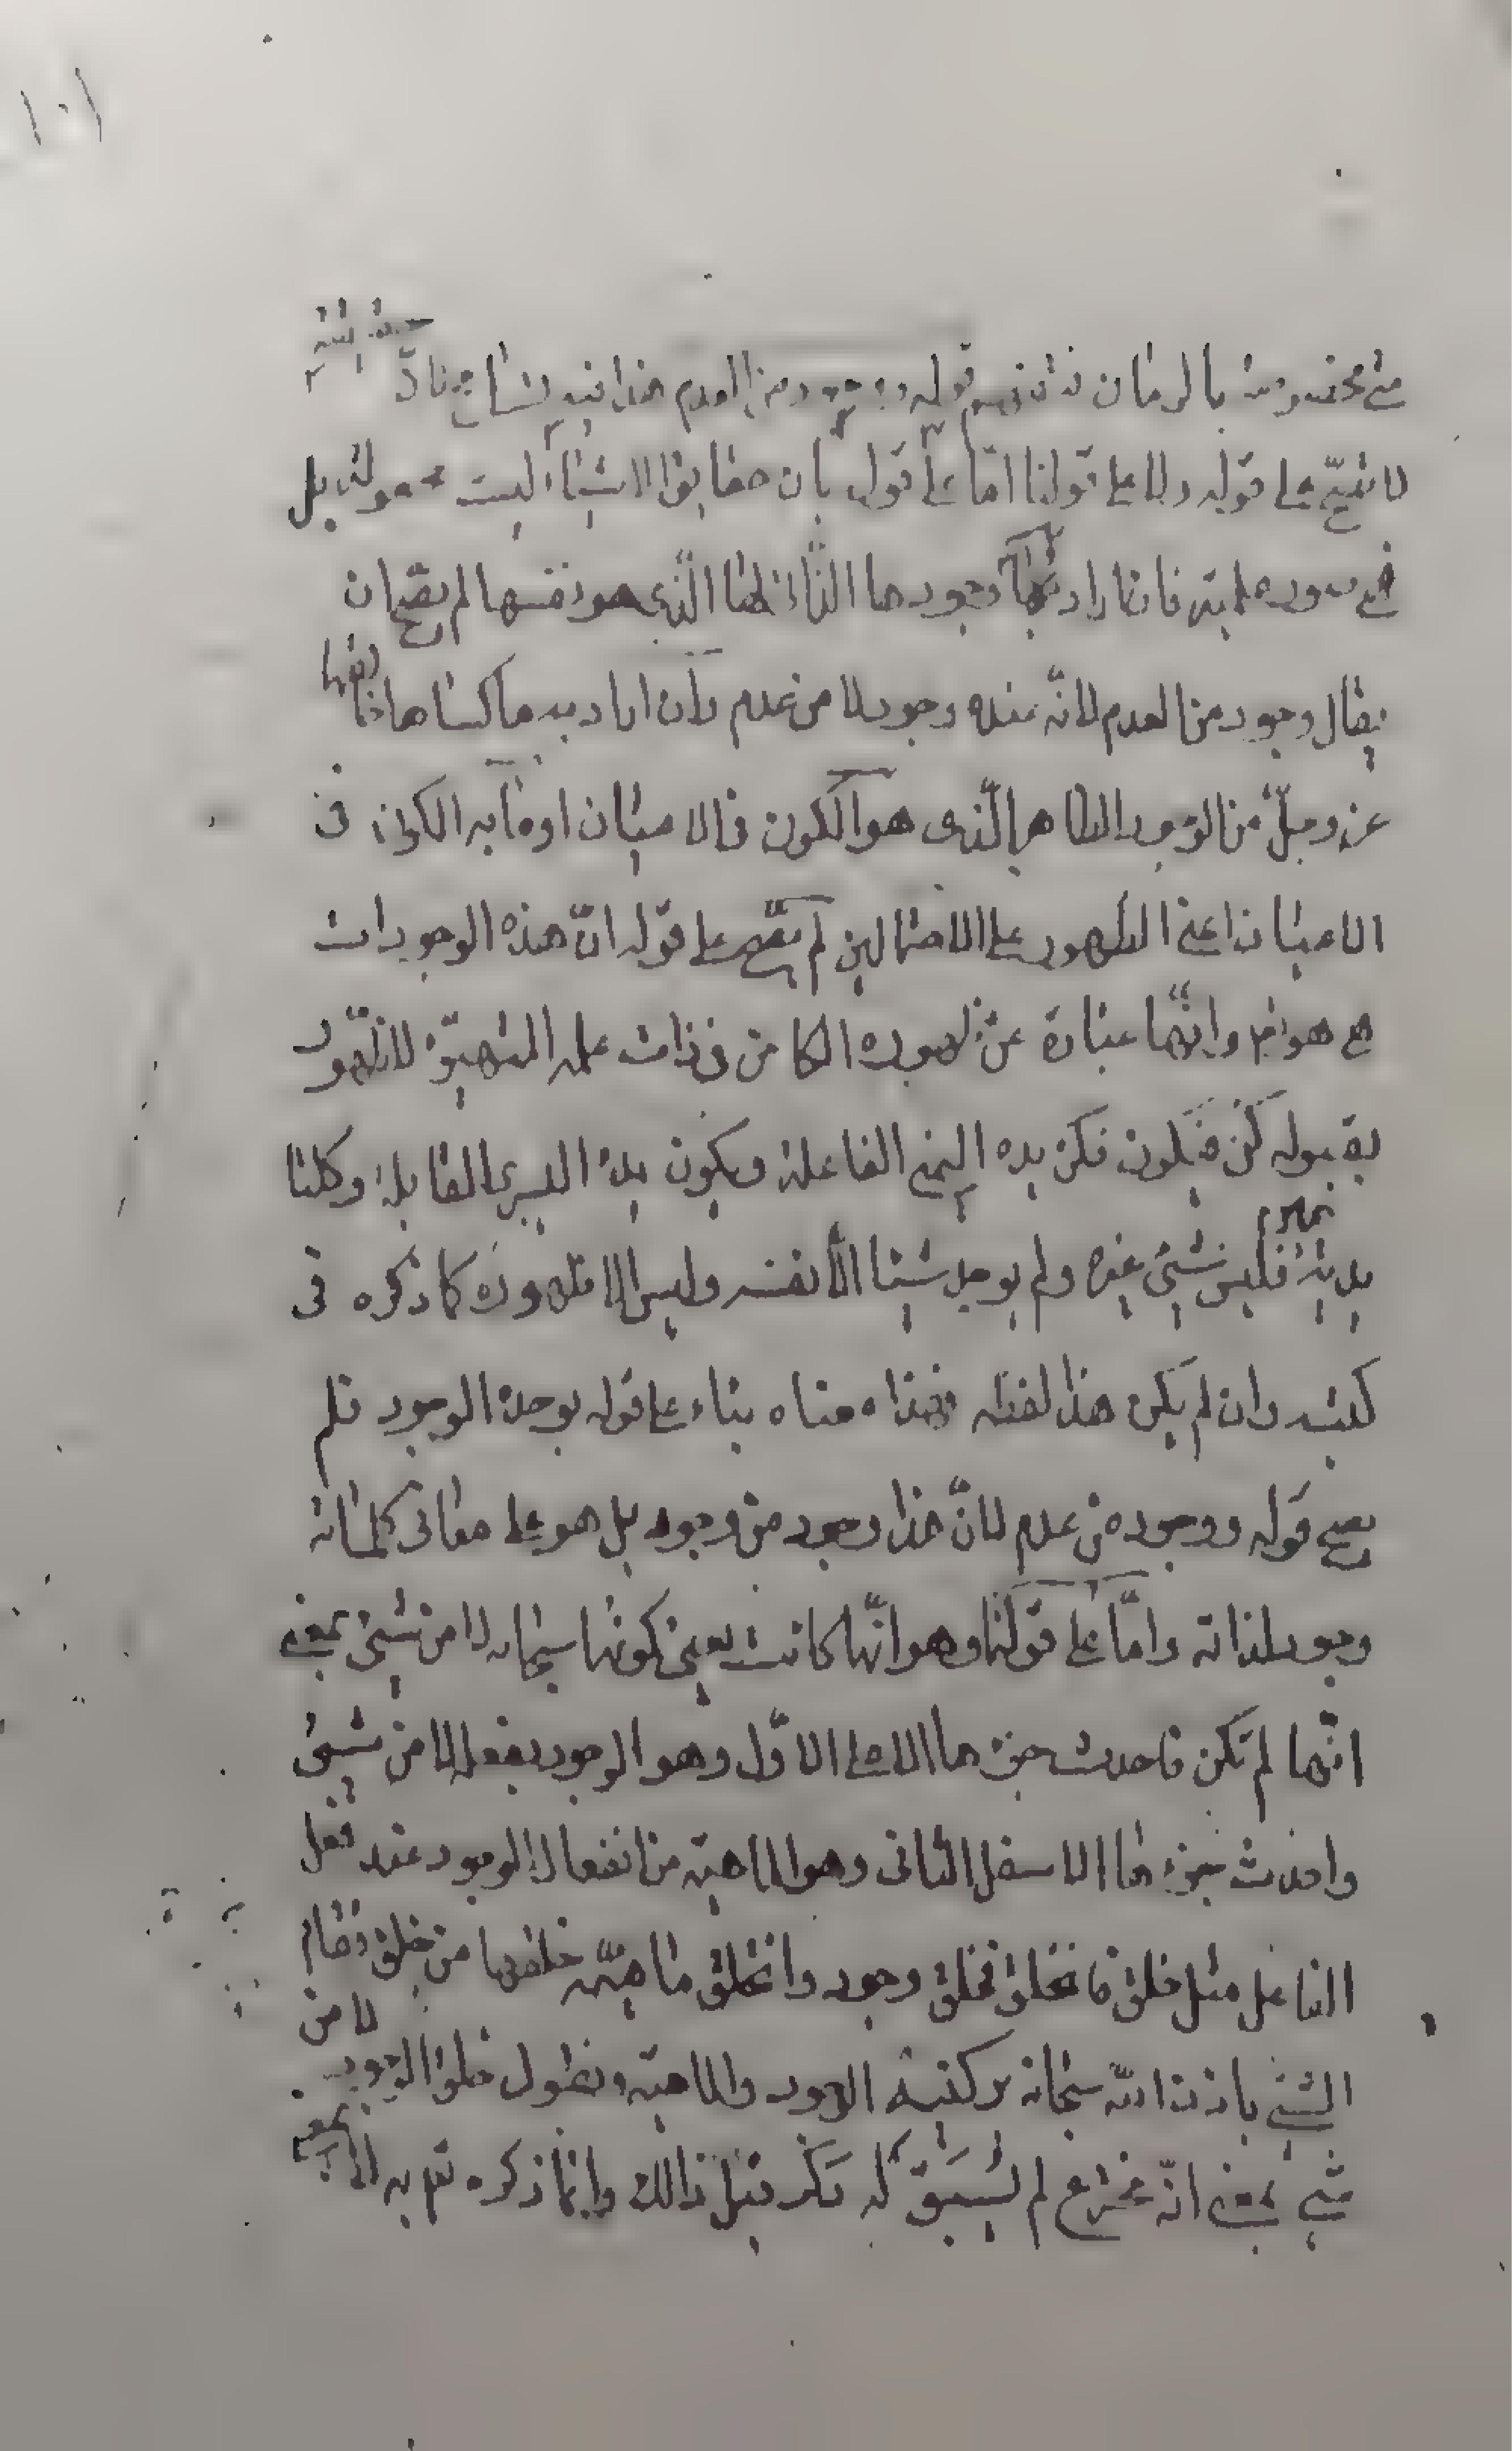 ١٠١
حينئذ
متى مخصوصة بالزمان فافهم قوله ووجوده من العدم هذا فيه تسامح
لا يصح على قوله ولا على قولنا امّا على قوله بان حقايق الاشياء ليست مجعولة بل
هي صور علمية فاذا اراد بها وجودها الذي هو نفسها لم يصح ان
يقال وجود من العدم لانّه عنده وجود لا من عدم وان اراد به ما كساها
عز وجلّ من الوجود الظاهر الّذي هو الكون في الاعيان او ما به الكون في
الاعيان اعني الظهور على الاحتمالين لم يصح على قوله انّ هذه الوجودات
هي هو وانّها عبارة عن ظهوره الكامن في ذات علمه المتهيّؤ للظهور
بقبوله كن فيكون فكن يده اليمنى الفاعلة ويكون يده اليسرى القابلة وكلتا
يديه فليس شيئ غيره ولم يوجد شيئا الّا نفسه وليس الا ظهوره كما ذكره في
كتبه وان لم يكن هذا لفظه فهذا معناه بناء على قوله بوحدة الوجود فلم
يصح قوله ووجوده من عدم لانّ هذا وجود من وجود بل هو على معاني كلماته
وجود لذاته وامّا على قولنا وهو انّها كانت بتكوينها سبحانه لا من شيئ بمعنى
انّها لم تكن فاحدث جزءها الاعلى الاوّل وهو الوجود بفعله لا من شيئ
واحدث جزءها الاسفل الثاني وهو الماهية من انفعال الوجود عند فعل
الفاعل مثل خلق فانخلق فخلق وجود وانخلق ماهيّة خلقها من خلق فقام
الشيئ باذن الله سبحانه بركنيه الوجود والماهية ونقول خلق الوجود لا من
شيئ بمعنى انّه مخترع لم يسبق له ذكر قبل ذالك وانما ذكره به